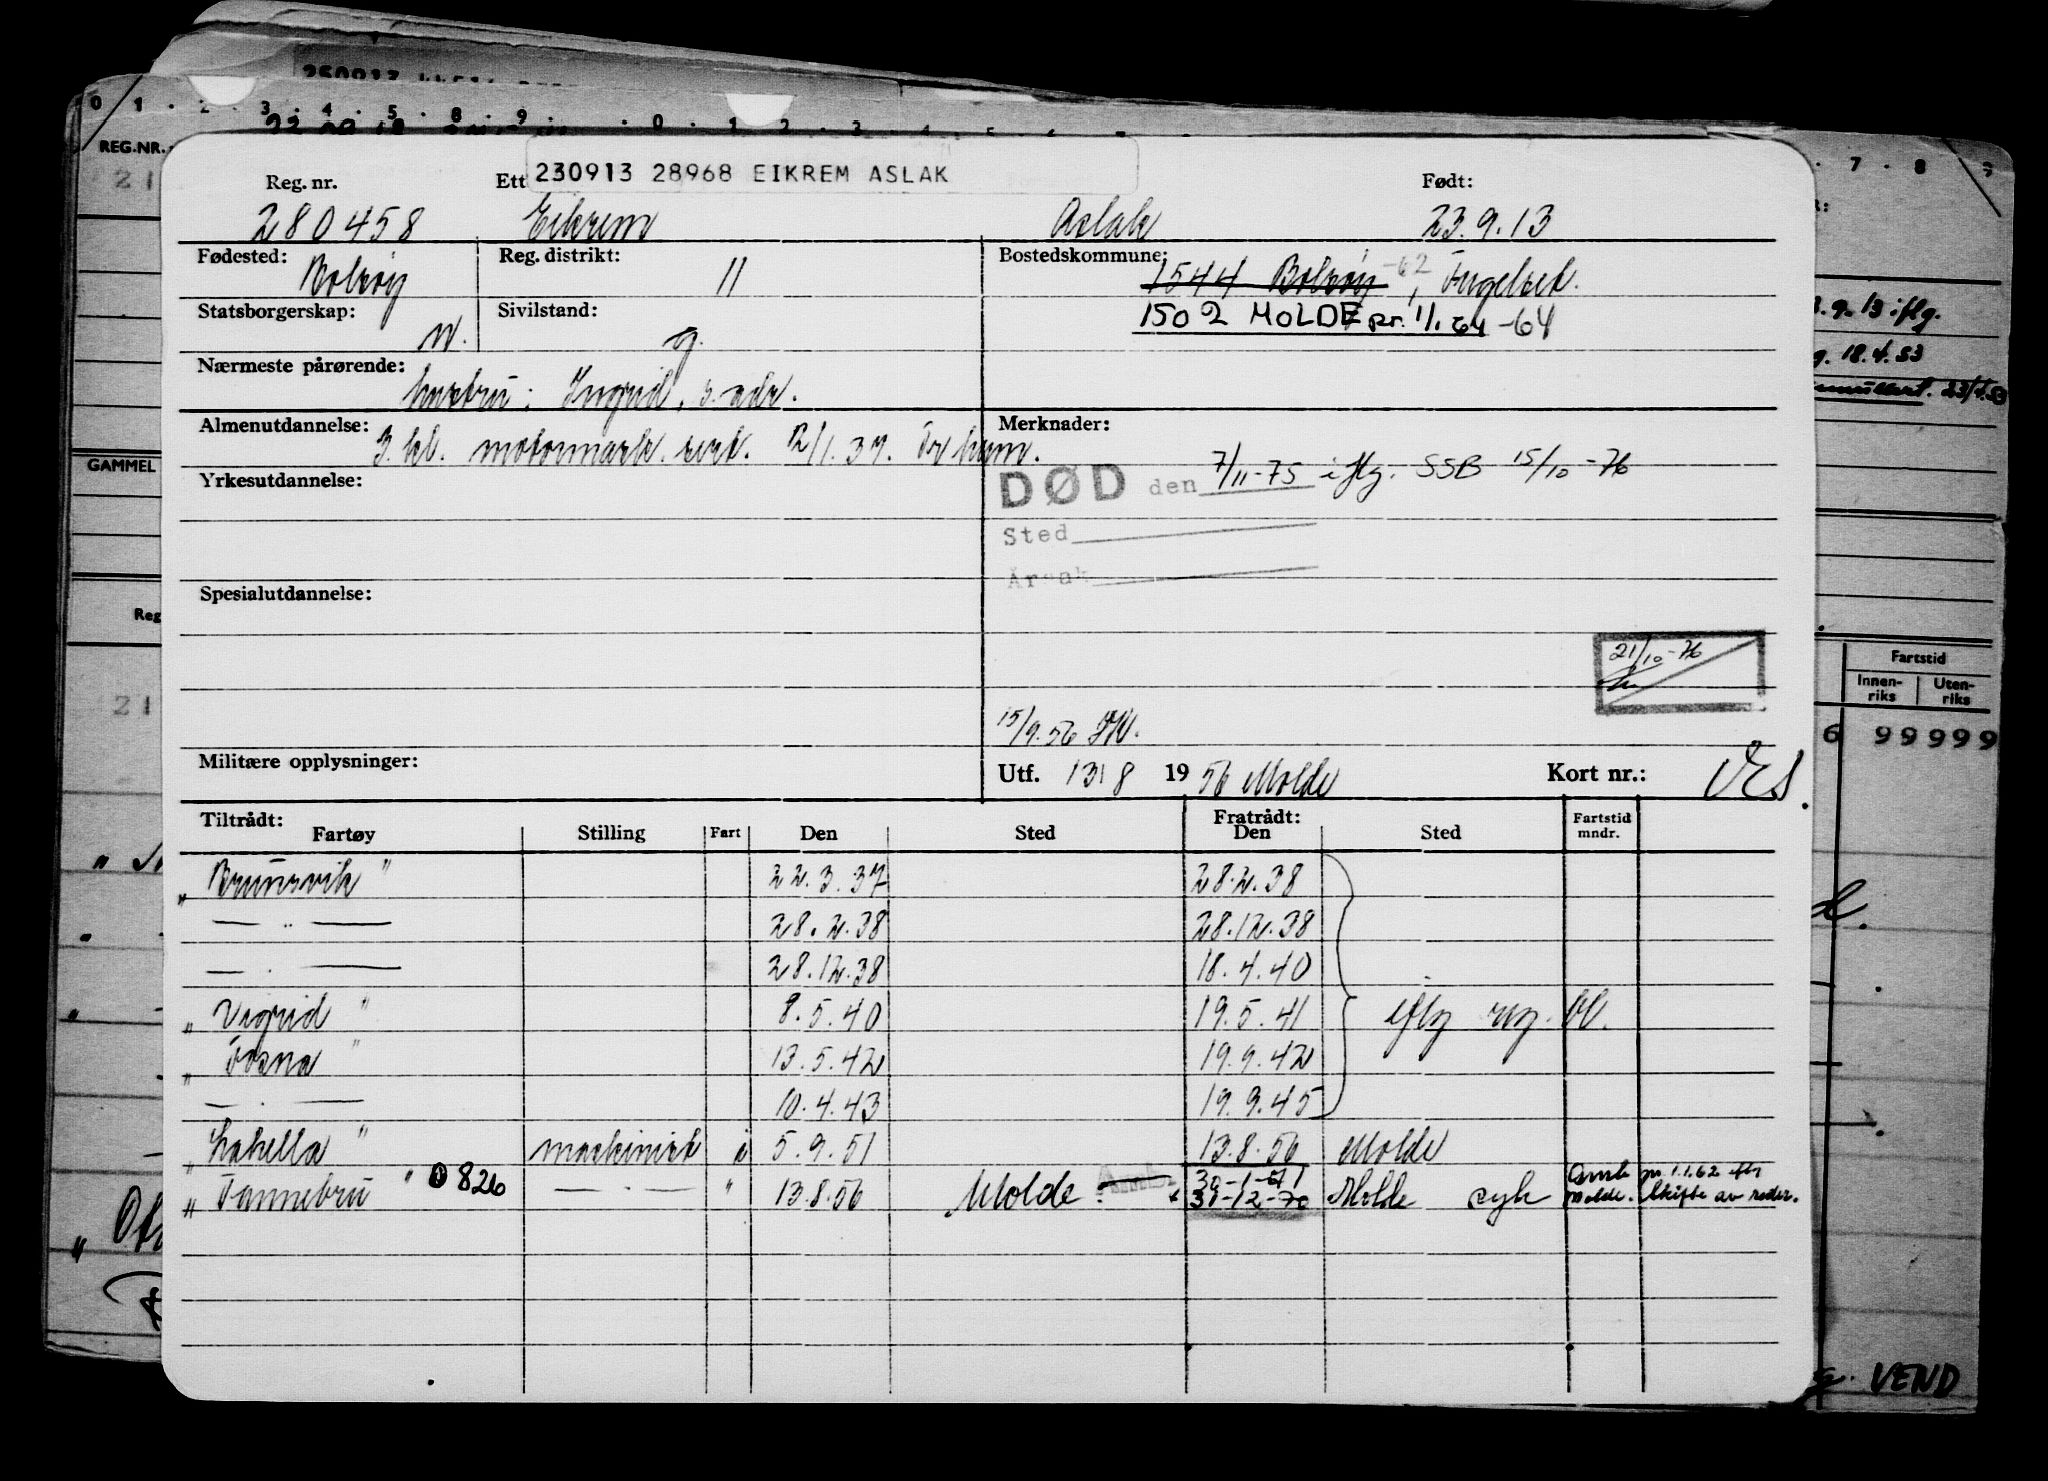 0 1 · 2 · 3 · 4 · 5 · 8 · 9 · · 0 · 1 2 · 3 4 5 · 7 · 8
REG.NR.
230913 28968 EIKREM ASLAK
Reg. nr. Ett Født:
280458 Eikrem Aslak 23.9.13
Fødested: Reg. distrikt: Bostedskommune:
Bolsøy 11 1544 Bolsøy -62, Fugelset.
Statsborgerskap: Sivilstand:
n. g. 1502 MOLDE pr. 1/1 64 -64
Nærmeste pårørende:
hustru: Ingrid, s. adr.
Almenutdannelse: Merknader:
3. kl. motormask. sert. 12/1.37. Tr.heim.
Yrkesutdannelse: DØD den 7/11-75 iflg. SSB 15/10-76
Sted
Årsak
Spesialutdannelse:
21/10-76
15/9.56
Militære opplysninger: Utf. 13/8 1956 Molde Kort nr.:
Tiltrådt: Fratrådt: Fartstid
Fartøy Stilling Fart Den Sted Den Sted mndr.
„Brunsvik" 22.3.37 28.2.38
— „ — 28.2.38 28.12.38
— „ — 28.12.38 18.4.40
„Vigrid" 8.5.40 19.5.41 iflg reg. bl.
„Fosna" 13.5.42 19.9.42
— „ — 10.4.43 19.9.45
„Isabella" maskinist i 5.9.51 13.8.56 Molde
„Tannebru" 0826 — „ — " 13.8.56 Molde 30-1-61
31-12-70 Molde syk Amk Molde. pr. 1.1.62 eftr skifte av reder.
GAMMEL
Reg
9.13 iflg.
18.4.53
Fartstid
Innen-riks Uten-riks
6 99999
VEND